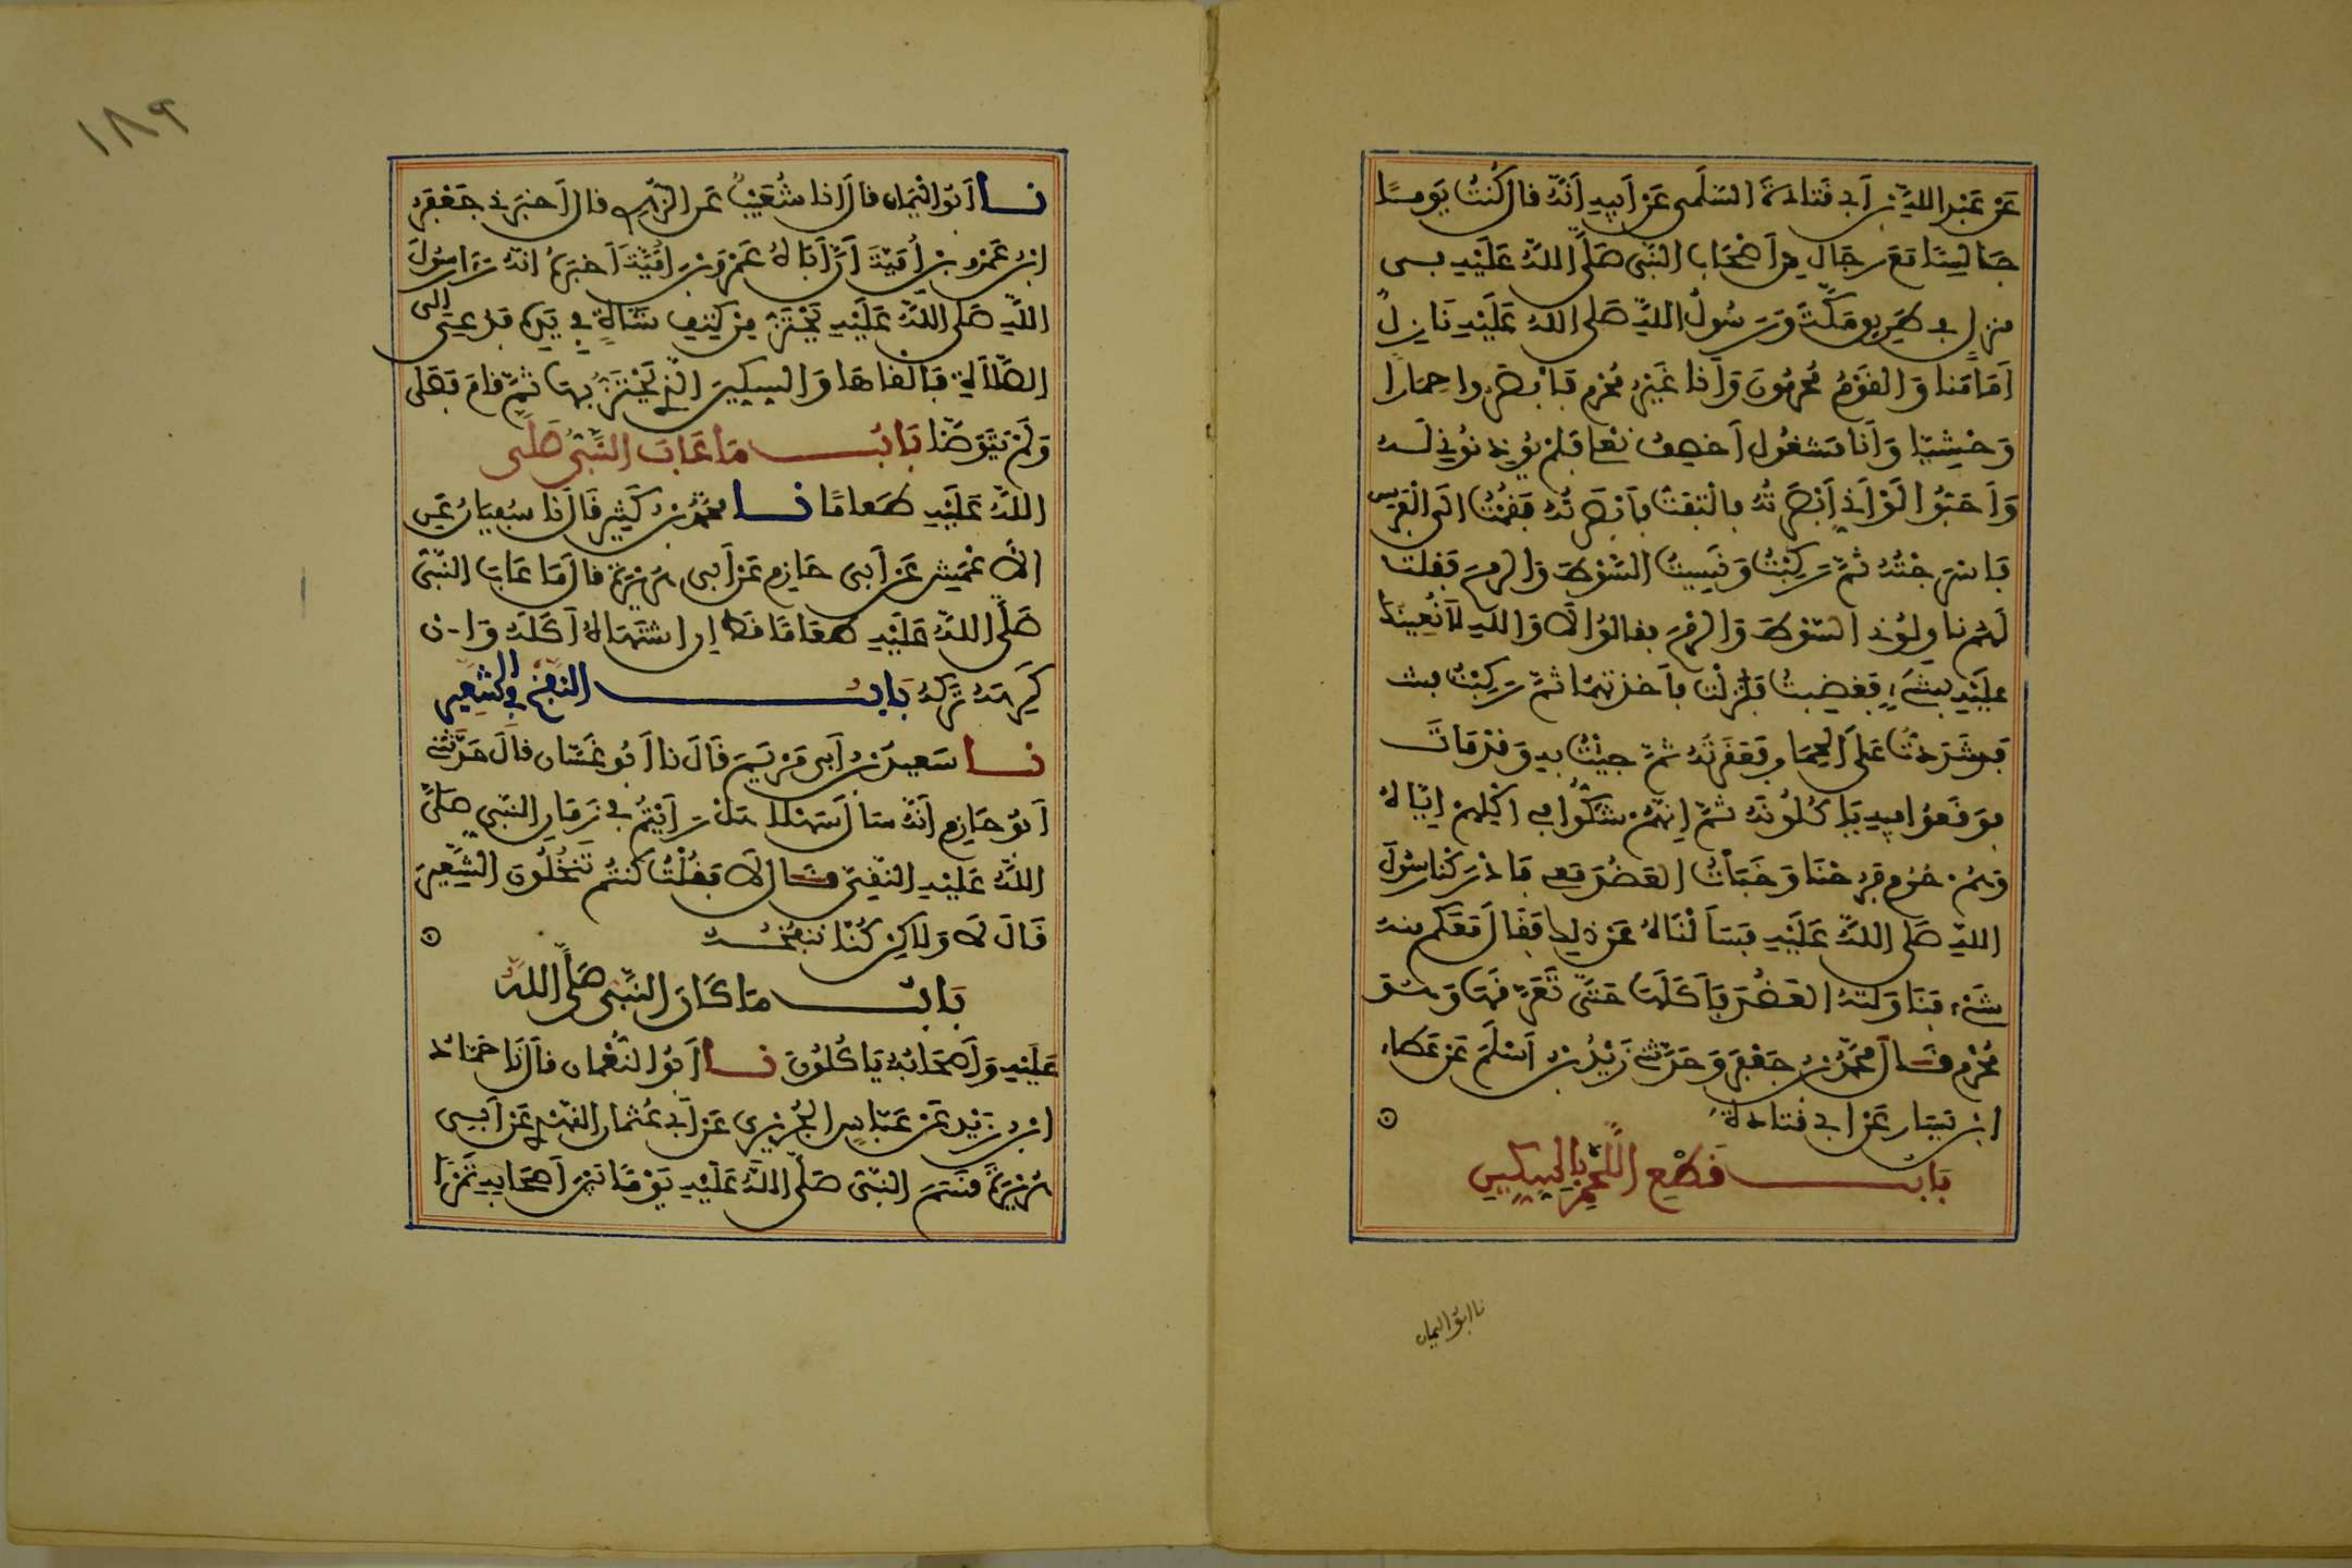 عَنْ عَبْدِ اللَّهِ بْنِ أَبِي قَتَادَةَ السُّلَمِي عَنْ أَبِيهِ أَنَّهُ قَالَ كُنْتُ يَوْمًا
جَالِسًا مَعَ رِجَالٍ مِنْ أَصْحَابِ النَّبِي صَلَّى اللَّهُ عَلَيْهِ فِي
مَنْزِلٍ فِي طَرِيقِ مَكَّةَ وَرَسُولُ اللَّهِ صَلَّى اللَّهُ عَلَيْهِ نَازِلٌ
أَمَامَنَا وَالْقَوْمُ مُحْرِمُونَ وَأَنَا غَيْرُ مُحْرِمٍ فَأَبْصَرُوا حِمَارًا
وَحْشِيًّا وَأَنَا مَشْغُولٌ أَخْصِفُ نَعْلِي فَلَمْ يُؤْذِنُونِي لَهُ
وَأَحَبُّوا لَوْ أَنِّي أَبْصَرْتُهُ فَالْتَفَتُّ فَأَبْصَرْتُهُ فَقُمْتُ إِلَى الْفَرَسِ
فَأَسْرَجْتُهُ ثُمَّ رَكِبْتُ وَنَسِيتُ السَّوْطَ وَالرُّمْحَ فَقُلْتُ
لَهُمْ نَاوِلُونِي السَّوْطَ وَالرُّمْحَ فَقَالُوا لَا وَاللَّهِ لَا نُعِينُكَ
عَلَيْهِ بِشَيْءٍ فَغَضِبْتُ فَنَزَلْتُ فَأَخَذْتُهُمَا ثُمَّ رَكِبْتُ فَشَ
فَشَدَدْتُ عَلَى الْحِمَارِ فَعَقَرْتُهُ ثُمَّ جِئْتُ بِهِ وَقَدْ مَاتَ
فَوَقَعُوا فِيهِ يَأْكُلُونَهُ ثُمَّ إِنَّهُمْ شَكُّوا فِي أَكْلِهِمْ إِيَّاهُ
وَهُمْ حُرُمٌ فَرُحْنَا وَخَبَأْتُ الْعَضُدَ مَعِي فَأَدْرَكْنَا رَسُولَ
اللَّهِ صَلَّى اللَّهُ عَلَيْهِ فَسَأَلْنَاهُ عَنْ ذَلِكَ فَقَالَ مَعَكُمْ مِنْهُ
شَيْءٌ فَنَاوَلْتُهُ الْعَضُدَ فَأَكَلَهَا حَتَّى تَعَرَّقَهَا وَهُوَ
مُحْرِمٌ قَالَ مُحَمَّدُ بْنُ جَعْفَرٍ وَحَدَّثَنِي زَيْدُ بْنُ أَسْلَمَ عَنْ عَطَاءِ
ابْنِ يَسَارٍ عَنْ أَبِي قَتَادَةَ
بَابُ قَطْعِ اللَّحْمِ بِالسِّكِّينِ
نا ابو اليمان
١٨٩
نا أَبُو الْيَمَانِ قَالَ أَنَا شُعَيْبٌ عَنِ الزُّهْرِي قَالَ أَخْبَرَنِي جَعْفَرُ
ابْنُ عَمْرِو بْنِ أُمَيَّةَ أَنَّ أَبَاهُ عَمْرَو بْنَ أُمَيَّةَ أَخْبَرَهُ أَنَّهُ رَأَى رَسُولَ
اللَّهِ صَلَّى اللَّهُ عَلَيْهِ يَحْتَزُّ مِنْ كَتِفِ شَاةٍ فِي يَدِهِ فَدُعِيَ إِلَى
الصَّلَاةِ فَأَلْقَاهَا وَالسِّكِّينَ الَّتِي يَحْتَزُّ بِهَا ثُمَّ قَامَ فَصَلَّى
وَلَمْ يَتَوَضَّأْ بَابُ مَا عَابَ النَّبِيُّ صَلَّى
اللَّهُ عَلَيْهِ طَعَامًا نا مُحَمَّدُ بْنُ كَثِيرٍ قَالَ أَنَا سُفْيَانُ عَنِ
الْأَعْمَشِ عَنْ أَبِي حَازِمٍ عَنْ أَبِي هُرَيْرَةَ قَالَ مَا عَابَ النَّبِيُّ
صَلَّى اللَّهُ عَلَيْهِ طَعَامًا قَطُّ إِنِ اشْتَهَاهُ أَكَلَهُ وَإِنْ
كَرِهَهُ تَرَكَهُ بَابُ النَّفْخِ فِي الشَّعِيرِ
نا سَعِيدُ بْنُ أَبِي مَرْيَمَ قَالَ نا أَبُو غَسَّانَ قَالَ حَدَّثَنِي
أَبُو حَازِمٍ أَنَّهُ سَأَلَ سَهْلًا هَلْ رَأَيْتُمْ فِي زَمَانِ النَّبِيِّ صَلَّى
اللَّهُ عَلَيْهِ النَّقِيَّ قَالَ لَا فَقُلْتُ كُنْتُمْ تَنْخُلُونَ الشَّعِيرَ
قَالَ لَا وَلَاكِنْ كُنَّا نَنْفُخُهُ
بَابُ مَا كَانَ النَّبِيُّ صَلَّى اللَّهُ
عَلَيْهِ وَأَصْحَابُهُ يَأْكُلُونَ نا أَبُو النُّعْمَانِ قَالَ نَا حَمَّادُ
ابْنُ زَيْدٍ عَنْ عَبَّاسٍ الْجُرَيْرِيِّ عَنْ أَبِي عُثْمَانَ النَّهْدِيِّ عَنْ أَبِي
هُرَيْرَةَ قَسَمَ النَّبِيُّ صَلَّى اللَّهُ عَلَيْهِ يَوْمًا بَيْنَ أَصْحَابِهِ تَمْرًا